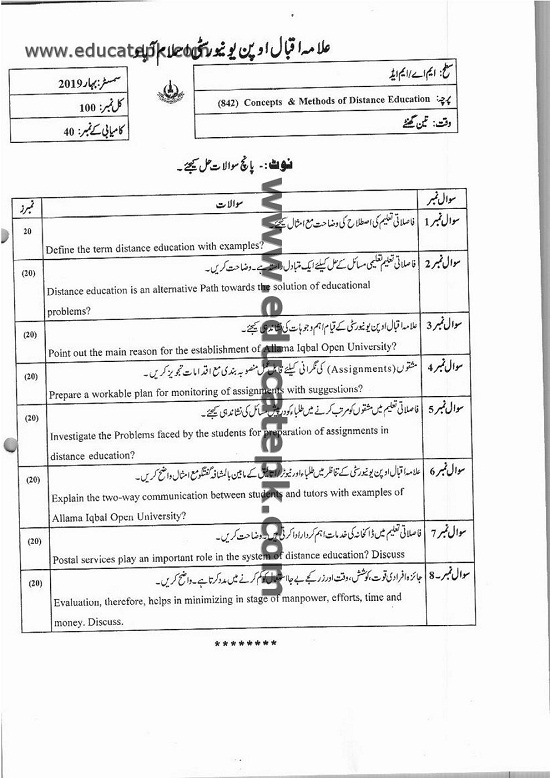 علامہ اقبال اوپن یونیورسٹی اسلام آباد
www.educatepk.com
سطح: ایم اے/ایم ایڈ
پرچہ: (842) Concepts & Methods of Distance Education
وقت: تین گھنٹے
سمسٹر: بہار 2019
کل نمبر: 100
کامیابی کے نمبر: 40
نوٹ:- پانچ سوالات حل کیجئے۔
سوال نمبر سوالات نمبرز
سوال نمبر 1 فاصلاتی تعلیم کی اصطلاح کی وضاحت مع امثال کیجئے۔ 20
Define the term distance education with examples?
سوال نمبر 2 فاصلاتی تعلیم تعلیمی مسائل کے حل کیلئے ایک متبادل راستہ ہے۔ وضاحت کریں۔ (20)
Distance education is an alternative Path towards the solution of educational
problems?
سوال نمبر 3 علامہ اقبال اوپن یونیورسٹی کے قیام اہم وجوہات کی نشاندہی کیجئے۔ (20)
Point out the main reason for the establishment of Allama Iqbal Open University?
سوال نمبر 4 مشقوں (Assignments) کی نگرانی کیلئے قابل عمل منصوبہ بندی مع اقدامات تجویز کریں۔ (20)
Prepare a workable plan for monitoring of assignments with suggestions?
سوال نمبر 5 فاصلاتی تعلیم میں مشقوں کو مرتب کرنے میں طلباء کو درپیش مسائل کی نشاندہی کیجئے۔ (20)
Investigate the Problems faced by the students for preparation of assignments in
distance education?
سوال نمبر 6 علامہ اقبال اوپن یونیورسٹی کے تناظر میں طلباء اور ٹیوٹر/اتالیق کے مابین بالمشافہ گفتگو مع امثال واضح کریں۔ (20)
Explain the two-way communication between students and tutors with examples of
Allama Iqbal Open University?
سوال نمبر 7 فاصلاتی تعلیم میں ڈاکخانہ کی خدمات اہم کردار ادا کرتی ہیں۔ وضاحت کریں۔ (20)
Postal services play an important role in the system of distance education? Discuss
سوال نمبر-8 جائزہ افرادی قوت، کوشش، وقت اور زر کے بے جا استعمال کو کم کرنے میں مدد کرتا ہے۔ واضح کریں۔ (20)
Evaluation, therefore, helps in minimizing in stage of manpower, efforts, time and
money. Discuss.
********
www.educatepk.com